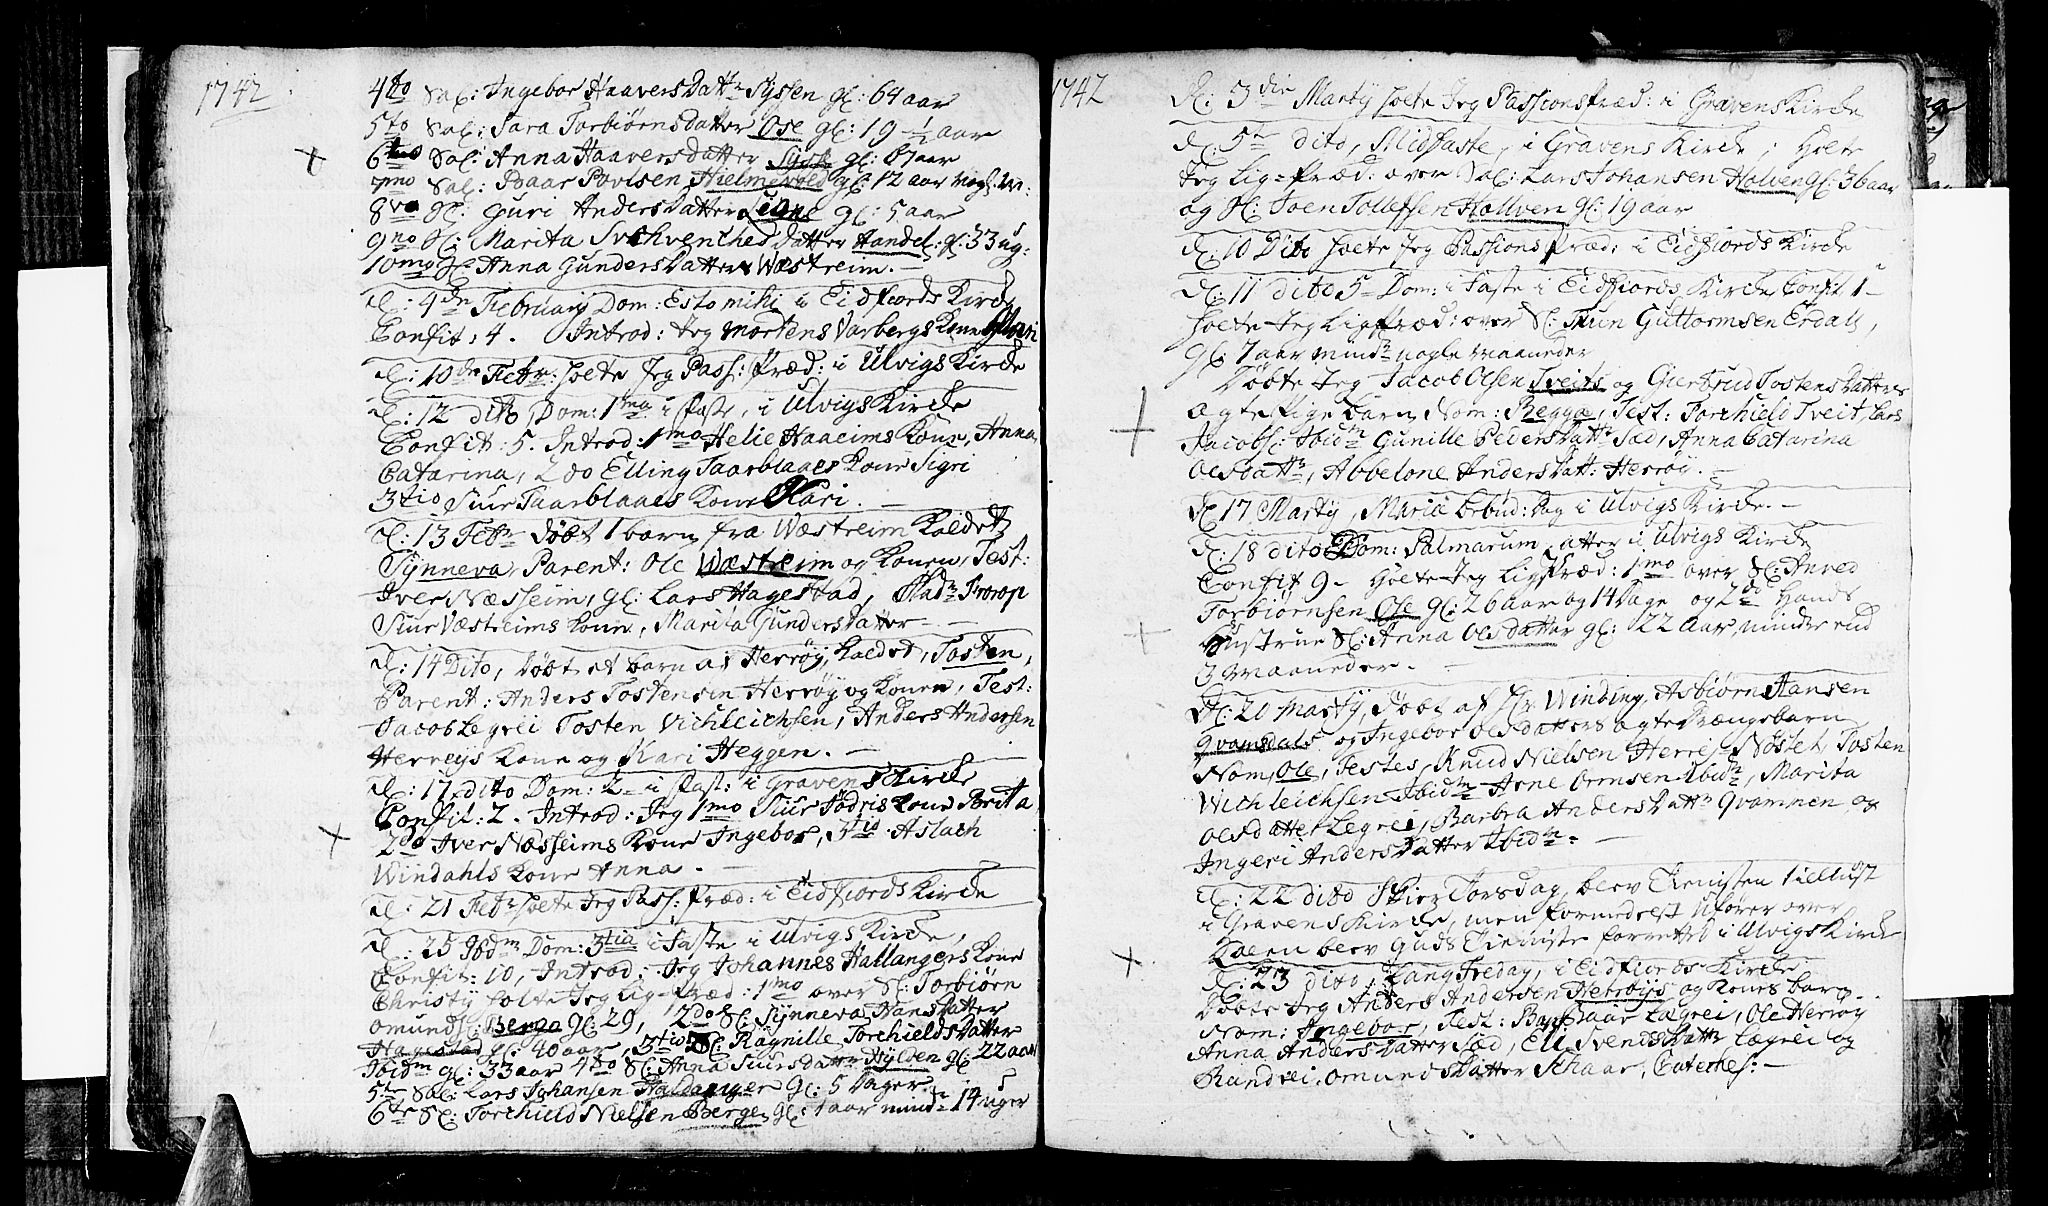 1742
4to Sal: Ingebor Haavers Datt: Syssen gl: 64 aar
5to Sal: Sara Torbiørnsdatter Ose gl: 19 ½ aar
6to Sal: Anna Haavers datter Syse gl: 67 aar
7mo Sal: Baar Povlsen Hielmevold gl: 12 aar
8vo gl: Guri Anders Datter Legne gl: 5 aar
9no Sl: Marita datter Handel: gl: 33 ug:
10mo gl: Anna Gunders Datter Wæstreim. —
D: 4de February Dom: Esto mihi i Eidfiords Kirke
Confit: 4. Introd: Jeg Mortens Varbergs Kone
D: 10de Febr: holte Jeg Pass: Præd: i Ulvigs Kirke
D: 12 dito Dom: 1ma i Fast, i Ulvigs Kirke
Confit: 5. Introd: 1mo Helie Haaeims Kone, Anna
Catarina, 2do Elling Taarblaaes Kone Sigri
3tio Siur Taarblaaes Kone Kari. —
D: 13 Febr døbt 1 barn fra Wæstreim Kaldet
Synneva, Parent: Ole Wæstreim og Konen, Test:
Iver Næsheim, gl: Lars Hagestad,
Siur Væstreims Kone, Marita Gunders Datter —
D: 14 Dito, Døbt et barn af Herrøy, Kaldet, Tosten,
Parent: Anders Tostensen Herrøy og Konen, Test:
Jacob Legrei Tosten Vichleichsen, Anders Andersen
Herreys Kone og Kari Heggen. —
D: 17 dito Dom: 2 i Fast: i Gravens Kirke
Confit: 2. Introd: Jeg 1mo Siur Sødris Kone Brita
2do Iver Næsheims Kone Ingebor, 3tio Aslach
Windahls Kone Anna. —
D: 21 Febr holte Jeg Pass: Præd: i Eidfiords Kirke
D: 25 Ibdm Dom: 3tia i Faste i Ulvigs Kirke,
Confit: 10, Introd: Jeg Johannes Hallangers Kone
Christy holte Jeg Lig-Præd: 1mo over Sl: Torbiørn
Omunds: Berge gl: 29, 2do Sl: Synneva Hans datter
Hagestad gl: 40 aar, 3tio Sl: Ragnille Torchields datter
Ibidm gl: 33 aar 4to Sl: Anna Siursdatter Hylden gl: 22 aar
5te Sal: Lars Johansen Haldanger gl: 5 dager
6te Sl: Torchield Nielsen Berge gl: 1 aar mindr 14 uger
1742
D: 3die Marty holte Jeg Passions præd: i Gravens Kirke
D: 5te dito, Midfaste, i Gravens Kirke; Holte
Jeg Lig-præd: over Sal: Lars Johansen Holven gl: 36 aar
og Sl: Joen Tollefsen Hollven gl: 19 aar
D: 10 Dito holte Jeg Passions præd: i Eidfiords Kirke
D: 11 dito 5 Dom: i Faste i Eidfiords Kirke Confit 1
holte Jeg Ligpræd: over Sl: Guttormsen Erdals,
gl: 7 aar mindr nogle maaneder
Døbte Jeg Jacob Olsen Tveits og Giertrud Tostens Datters
ægte Pige barn Nom: Begga, Test: Torchield Tveit, Lars
Jacobs: Ibidm Gunille Peders datt Sæd, Anna Catarina
Olsdatt, Abbelone Anders datt: Herrøy. —
D 17 Marty, Mariæ bebud: Dag i Ulvigs Kirke. —
D: 18 dito Dom: Palmarum, atter i Ulvigs Kirke
Confit 9 — Holte Jeg Ligpræd: 1mo over Sl: Anved
Torbiørnsen Ose gl: 26 aar og 14 Dage og 2do Hands
Hustrue Sl: Anna Olsdatter gl: 22 aar, minder end
3 maaneder. —
D: 20 Marty, Døbt af Hr Winding, Asbiørn Hansen
Qvamsdals og Ingebor Olsdatters ægte Drænge barn
Nom, Ole, Testes, Knud Nielsen Herrei Nøstet, Tosten
Wichleichsen Ibidm Arne Ormsen Ibidm, Marita
Olsdatter Legrei, Barbra Anders datt Qvammen og
Ingeri Anders Datter Ibidm. —
D: 22 dito Skier Torsdag, blev Tienisten
i Gravens Kirke, men formedelst uføret over
blev Guds Tieniste forrettet i Ulvigs Kirke
D: 23 dito Lang Fredag, i Eidfiords Kirke
Døbte Jeg Anders Andersen Herrøys og Kones barn
Nom: Ingebor, Test: Baar Lægrei, Ole Herrøy
Anna Anders Datter Sæd, Eli Svends Datter Lægrei og
Randvei Omunds Datter Schaar, Cateches: —